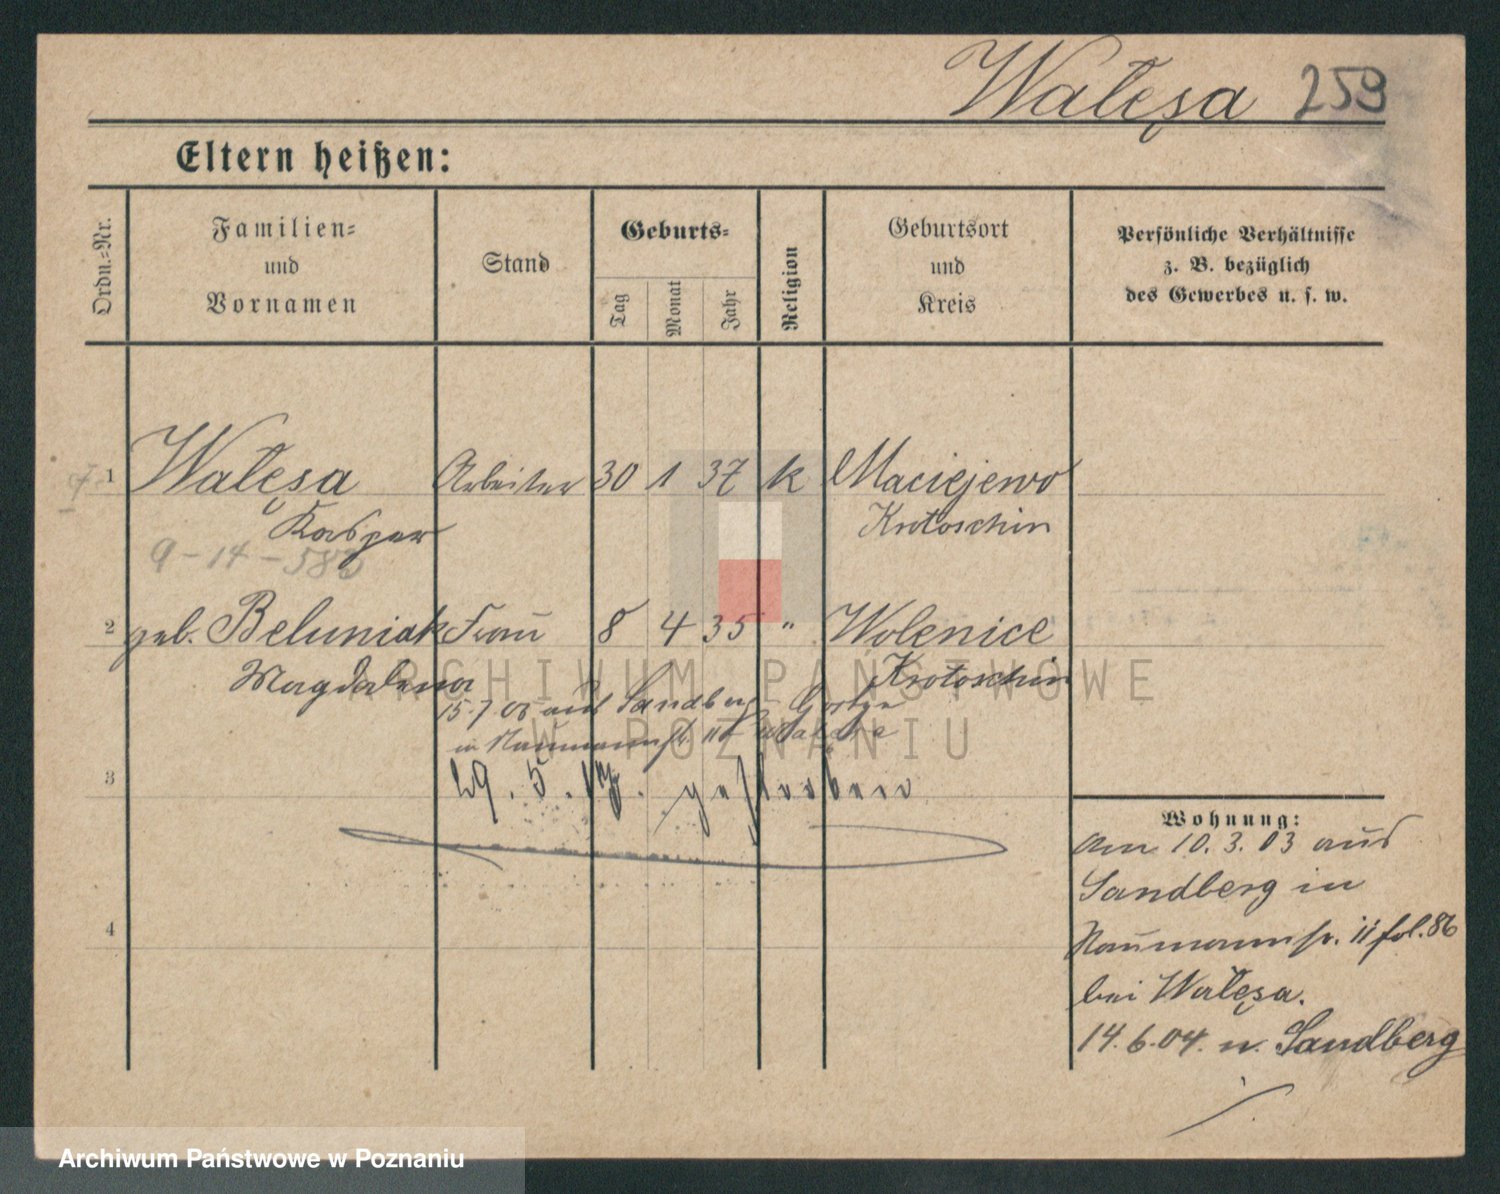 Wałęsa 259
Eltern heißen:
Ordn.-Nr.
Familien-
und
Vornamen
Stand
Geburts-
Tag
Monat
Jahr
Religion
Geburtsort
und
Kreis
Persönliche Verhältnisse
z. B. bezüglich
des Gewerbes u. s. w.
1 Wałęsa Arbeiter 30 1 37 k Maciejewo
Kasper Krotoschin
9-14-583
2 geb. Beluniak Frau 8 4 35 " Wolenice
Magdalena Krotoschin
15.7.05 aus Sandberg
in Naumannstr. 11
3 29. 5. 17. gestorben
4
Wohnung:
Am 10.3.03 aus
Sandberg in
Naumannstr. 11 fol. 86
bei Wałęsa.
14.6.04. n. Sandberg
ARCHIWUM PAŃSTWOWE
W POZNANIU
Archiwum Państwowe w Poznaniu